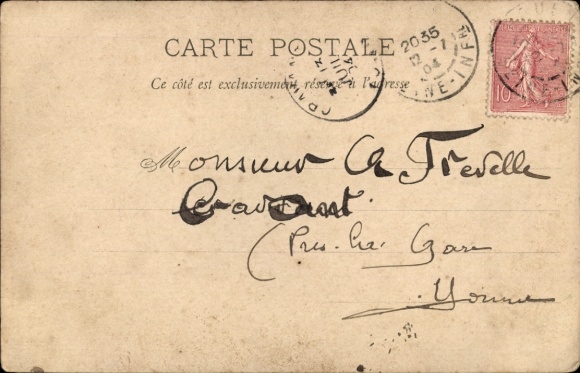 CARTE POSTALE
Ce côté est exclusivement réservé à l'adresse
2035
12-1
04
INE-INFRE
10
Monsieur A Trevelle
Cravant
(Près la Gare
Yonne